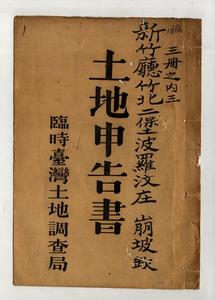 1616
三冊之内三
新竹廳竹北二堡波羅汶庄 崩坡缺
土地申告書
臨時臺灣土地調查局